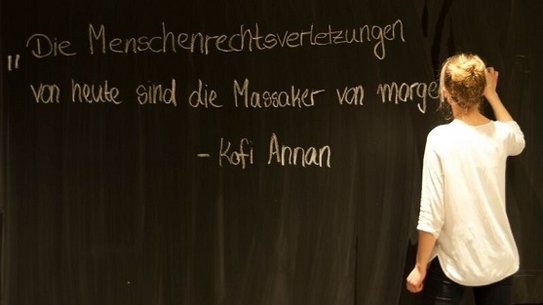 „Die Menschenrechtsverletzungen
von heute sind die Massaker von morge
- Kofi Annan